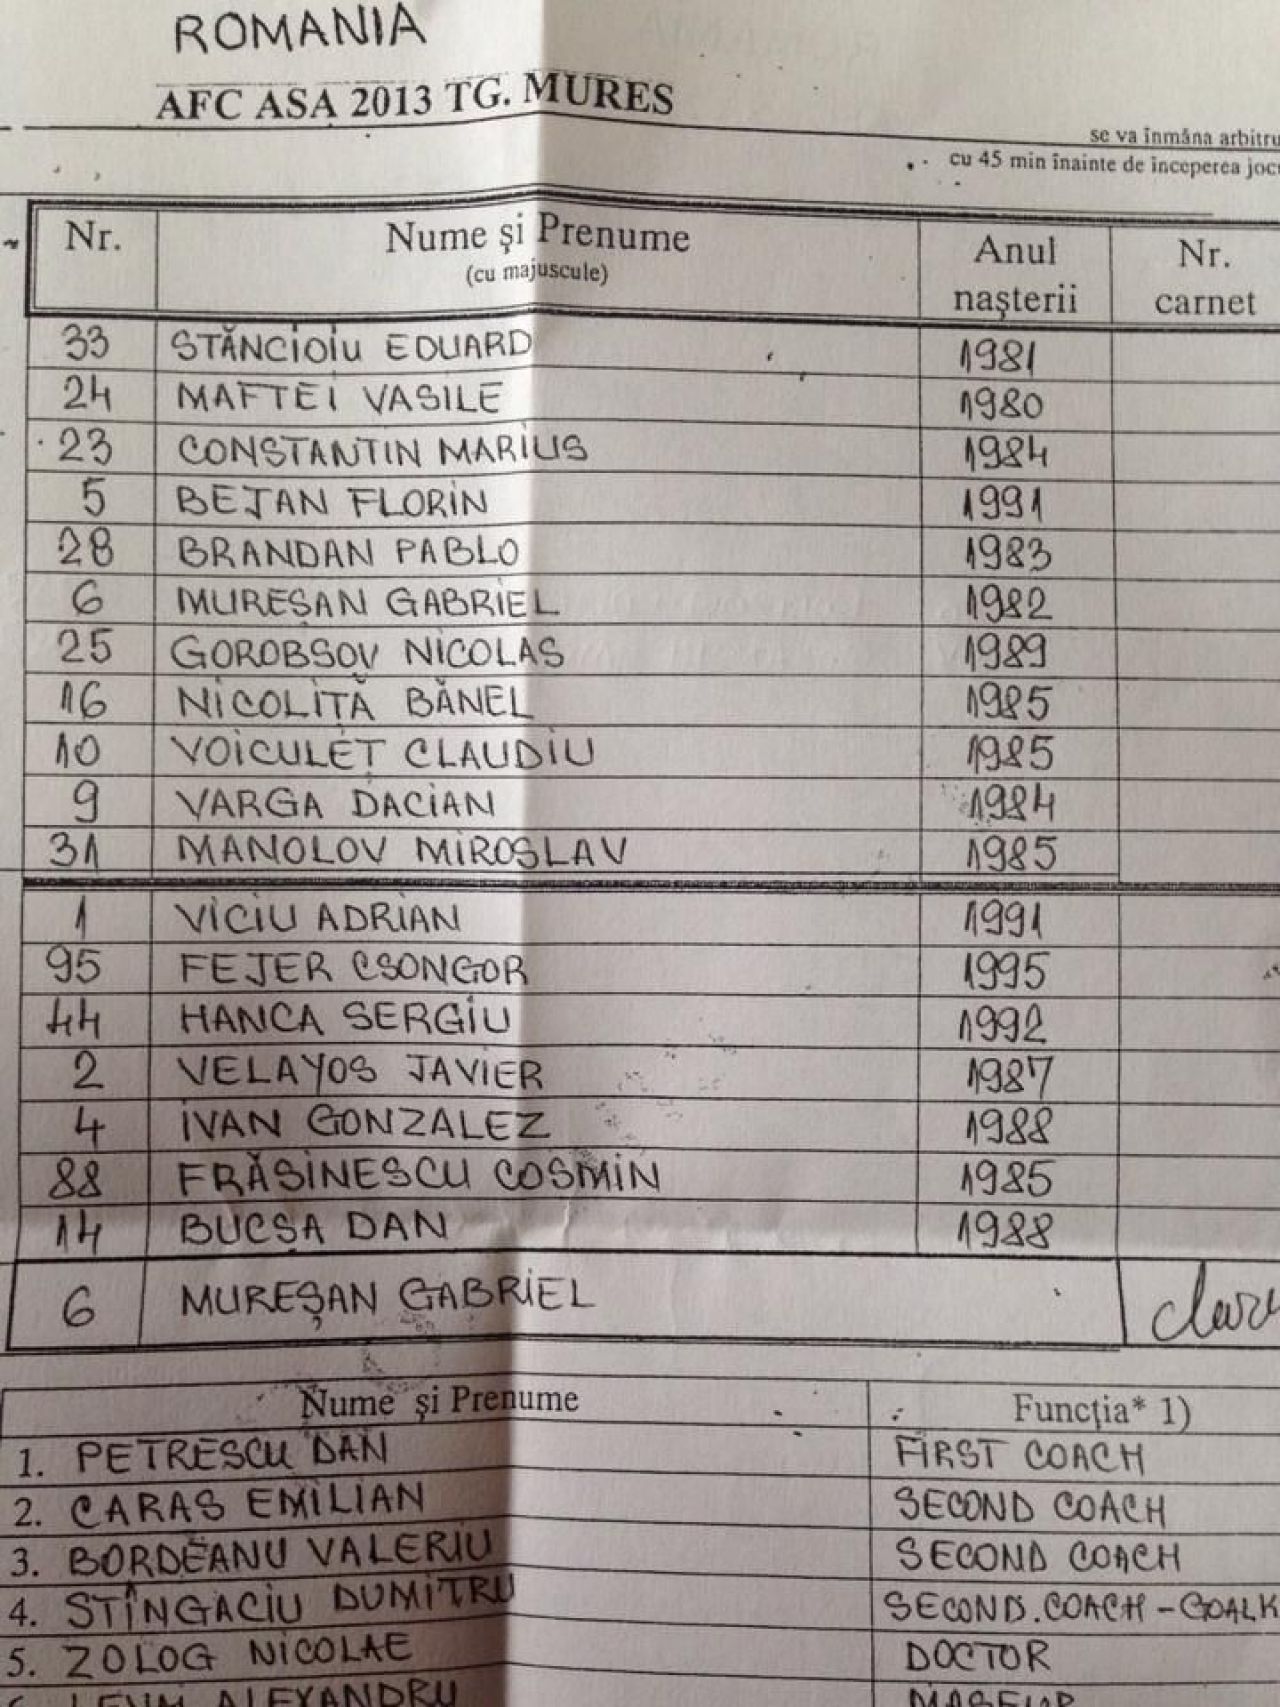 ROMANIA
AFC ASA 2013 TG. MURES
se va înmâna arbitru
cu 45 min înainte de începerea jocu
Nr. Nume și Prenume (cu majuscule) Anul nașterii Nr. carnet
33 STĂNCIOIU EDUARD 1981
24 MAFTEI VASILE 1980
23 CONSTANTIN MARIUS 1984
5 BEJAN FLORIN 1991
28 BRANDAN PABLO 1983
6 MUREȘAN GABRIEL 1982
25 GOROBSOV NICOLAS 1989
16 NICOLIȚĂ BĂNEL 1985
10 VOICULEȚ CLAUDIU 1985
9 VARGA DACIAN 1984
31 MANOLOV MIROSLAV 1985
1 VICIU ADRIAN 1991
95 FEJER CSONGOR 1995
44 HANCA SERGIU 1992
2 VELAYOS JAVIER 1987
4 IVAN GONZALEZ 1988
88 FRĂSINESCU COSMIN 1985
14 BUCȘA DAN 1988
6 MUREȘAN GABRIEL
Nume și Prenume Funcția* 1)
1. PETRESCU DAN FIRST COACH
2. CARAS EMILIAN SECOND COACH
3. BORDEANU VALERIU SECOND COACH
4. STÎNGACIU DUMITRU SECOND.COACH - GOALK
5. ZOLOG NICOLAE DOCTOR
ALEXANDRU MASEUR